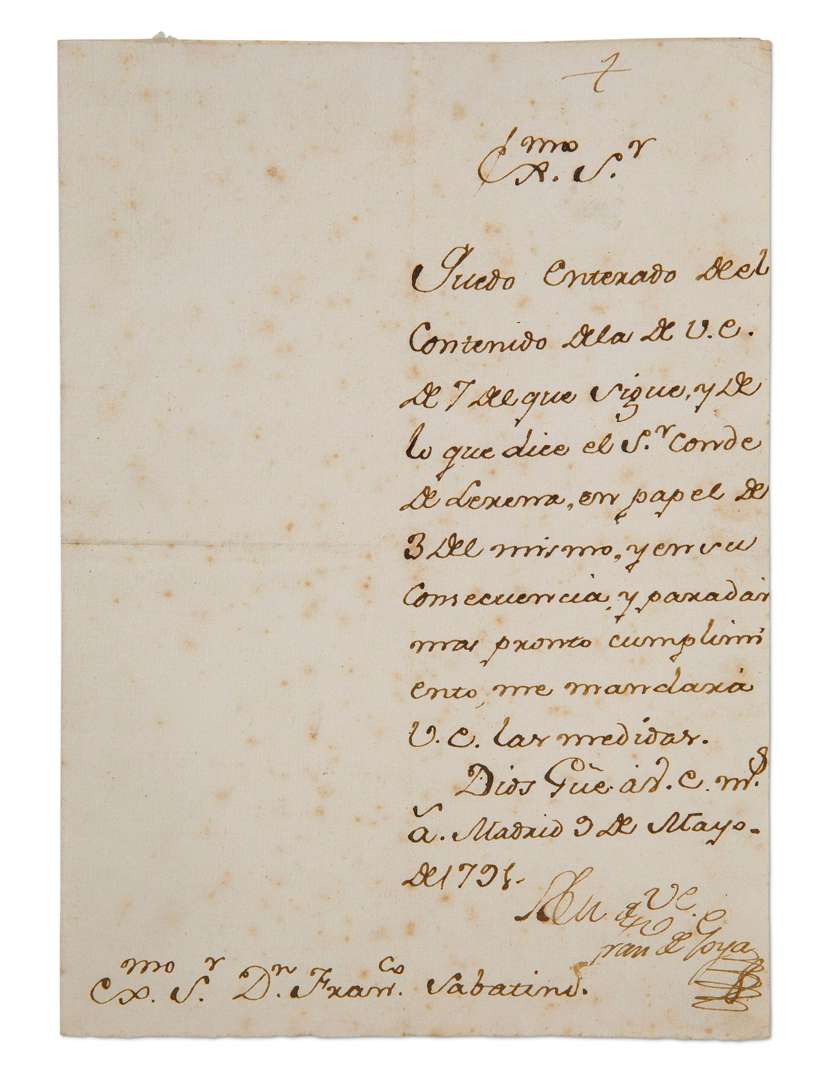 Ex.mo S.r
Quedo enterado de el
Contenido dela de V.E.
de 7 del que sigue, y de
lo que dice el S.r Conde
de Lerena, en papel de
3 del mismo, y en su
Consecuencia, y paradar
mas pronto cumplimi
ento, me mandará
V.E. las medidas.
Dios Güe. á V.E. m.s
a.s Madrid 9 de Mayo
de 1791.
V.E.
Fran.co de Goya
Ex.mo S.r D.n Fran.co Sabatini.